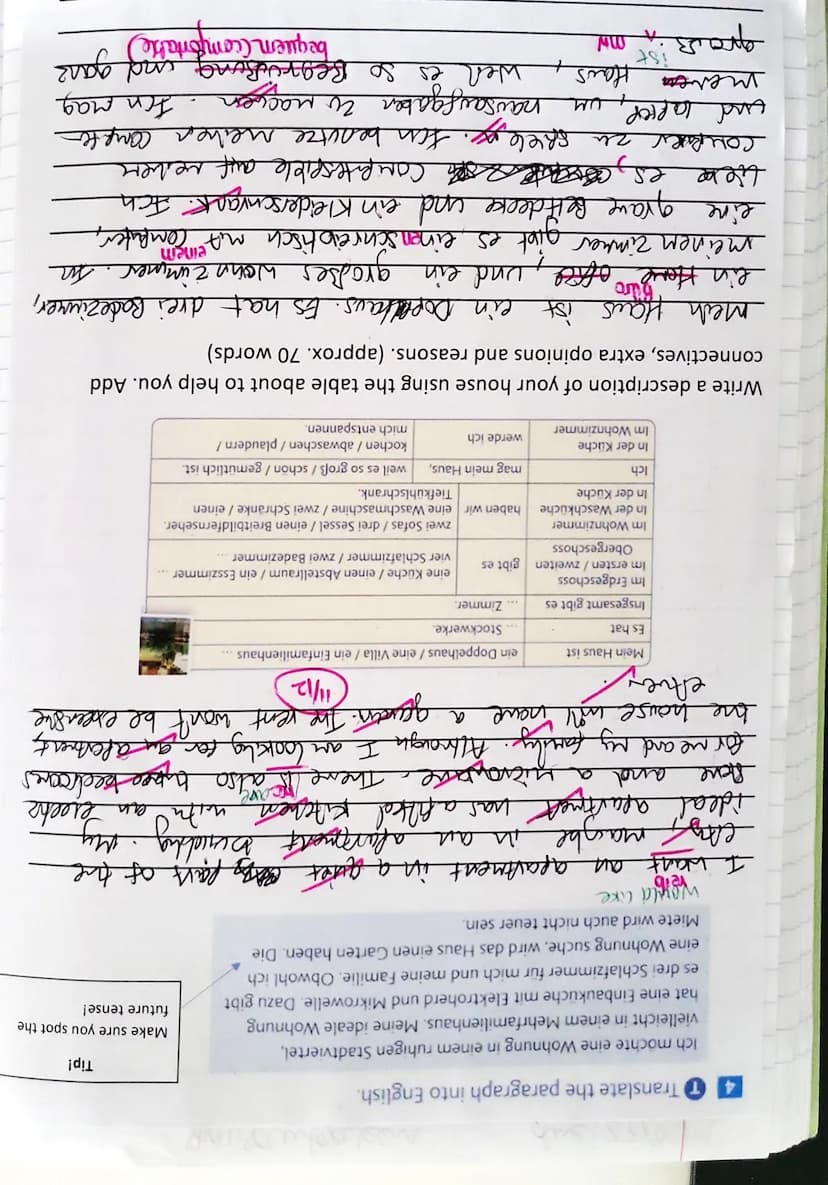 4 T Translate the paragraph into English.
Tip!
Make sure you spot the
future tense!
Ich möchte eine Wohnung in einem ruhigen Stadtviertel,
vielleicht in einem Mehrfamilienhaus. Meine ideale Wohnung
hat eine Einbauküche mit Elektroherd und Mikrowelle. Dazu gibt
es drei Schlafzimmer für mich und meine Familie. Obwohl ich
eine Wohnung suche, wird das Haus einen Garten haben. Die
Miete wird auch nicht teuer sein.
would like
I want an apartment in a quiet part of the
city, maybe in an apartment building. My
ideal apartment has a fitted kitchen with an electric
stove and a microwave. There is also three bedrooms
for me and my family. Although I am looking for an apartment,
the house will have a garden. The rent won't be expensive
either.
11/12
Mein Haus ist ein Doppelhaus / eine Villa / ein Einfamilienhaus ...
Es hat ... Stockwerke.
Insgesamt gibt es ... Zimmer.
Im Erdgeschoss
Im ersten / zweiten Obergeschoss gibt es eine Küche / einen Abstellraum / ein Esszimmer ...
vier Schlafzimmer / zwei Badezimmer ...
Im Wohnzimmer
In der Waschküche
In der Küche haben wir zwei Sofas / drei Sessel / einen Breitbildfernseher.
eine Waschmaschine / zwei Schränke / einen
Tiefkühlschrank.
Ich mag mein Haus, weil es so groß / schön / gemütlich ist.
In der Küche
Im Wohnzimmer werde ich kochen / abwaschen / plaudern /
mich entspannen.
Write a description of your house using the table about to help you. Add
connectives, extra opinions and reasons. (approx. 70 words)
Mein Haus ist ein Doppelhaus. Es hat drei Badezimer,
Büro
ein Home office, und ein großes Wohnzimmer. In
einem
meinen Zimmer gibt es einen schreibtisch mit Computer,
eine graue Bettdecke und ein Kleiderschrank. Ich
liebe es, Computerspiele auf meinem
computer zu spielen. Ich benutze meinen Compute
und laptop, um hausaufgaben zu machen. Ich mag
meinen Haus, weil es so und ganz
bequem (comfortable)
groß ist.